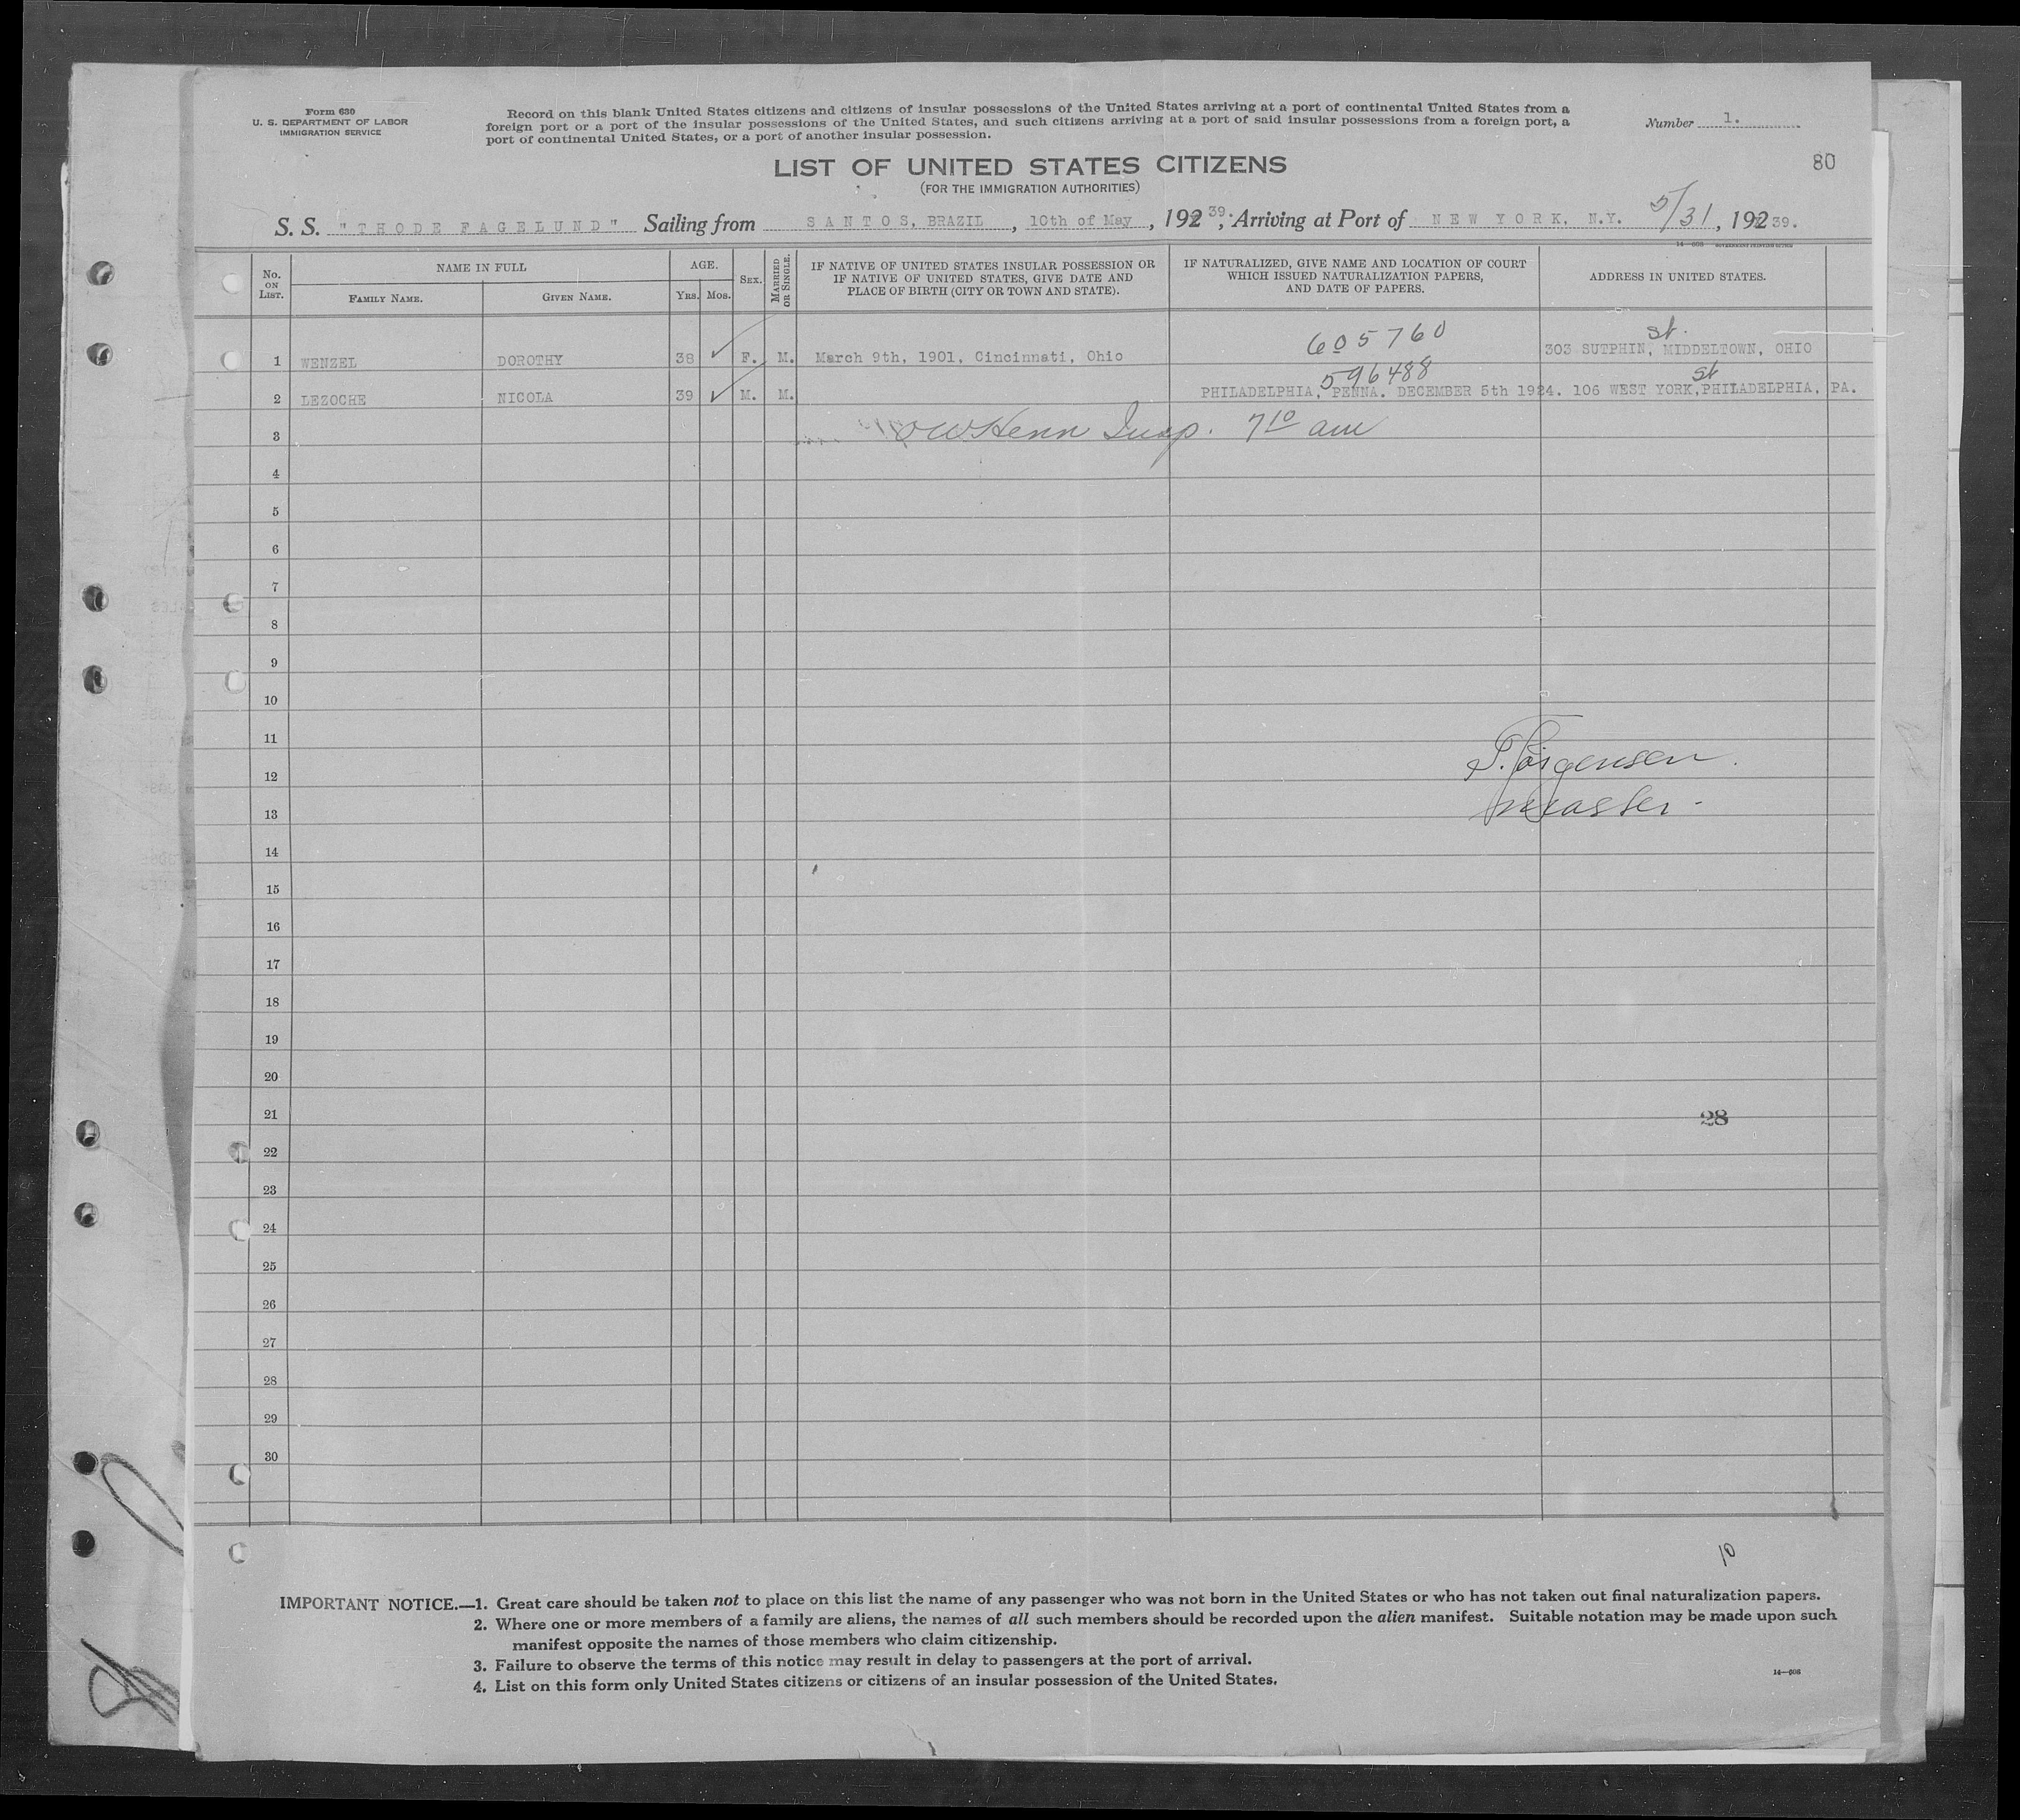 Form 630
U. S. DEPARTMENT OF LABOR
IMMIGRATION SERVICE
Record on this blank United States citizens and citizens of insular possessions of the United States arriving at a port of continental United States from a
foreign port or a port of the insular possessions of the United States, and such citizens arriving at a port of said insular possessions from a foreign port, a
port of continental United States, or a port of another insular possession.
Number 1.
80
LIST OF UNITED STATES CITIZENS
(FOR THE IMMIGRATION AUTHORITIES)
S. S. "THODE FAGELUND" Sailing from SANTOS, BRAZIL, 10th of May, 192 39; Arriving at Port of NEW YORK, N.Y. 5/31, 192 39.
No. ON LIST.
NAME IN FULL
FAMILY NAME.
GIVEN NAME.
AGE.
YRS. MOS.
SEX.
MARRIED OR SINGLE.
IF NATIVE OF UNITED STATES INSULAR POSSESSION OR
IF NATIVE OF UNITED STATES, GIVE DATE AND
PLACE OF BIRTH (CITY OR TOWN AND STATE).
IF NATURALIZED, GIVE NAME AND LOCATION OF COURT
WHICH ISSUED NATURALIZATION PAPERS,
AND DATE OF PAPERS.
ADDRESS IN UNITED STATES.
605760 st.
1 WENZEL DOROTHY 38 F. M. March 9th, 1901, Cincinnati, Ohio 303 SUTPHIN, MIDDELTOWN, OHIO
596488 st
2 LEZOCHE NICOLA 39 M. M. PHILADELPHIA, PENNA. DECEMBER 5th 1924. 106 WEST YORK, PHILADELPHIA, PA.
3 OW Henn Insp. 7 10 am
4
5
6
7
8
9
10
11
12 Jörgensen
13 Master
14
15
16
17
18
19
20
21 28
22
23
24
25
26
27
28
29
30
10
IMPORTANT NOTICE.—1. Great care should be taken not to place on this list the name of any passenger who was not born in the United States or who has not taken out final naturalization papers.
2. Where one or more members of a family are aliens, the names of all such members should be recorded upon the alien manifest. Suitable notation may be made upon such
manifest opposite the names of those members who claim citizenship.
3. Failure to observe the terms of this notice may result in delay to passengers at the port of arrival.
4. List on this form only United States citizens or citizens of an insular possession of the United States.
14—608